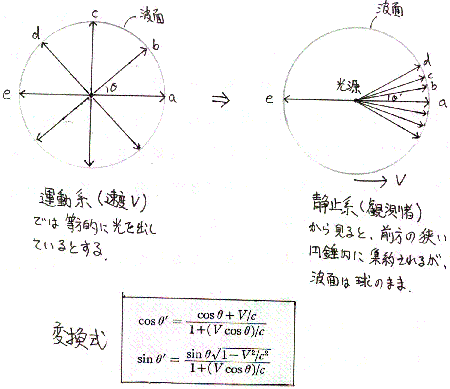 波面
c
d
b
θ
e
a
運動系(速度V)
では等方的に光を出し
ているとする.
⇒
波面
d
c
b
光源
θ'
e
a
V
静止系(観測者)
から見ると、前方の狭い
円錐内に集約されるが、
波面は球のまま.
変換式
cos θ′ = (cos θ + V/c) / (1 + (V cos θ)/c)
sin θ′ = (sin θ √(1 − V²/c²)) / (1 + (V cos θ)/c)